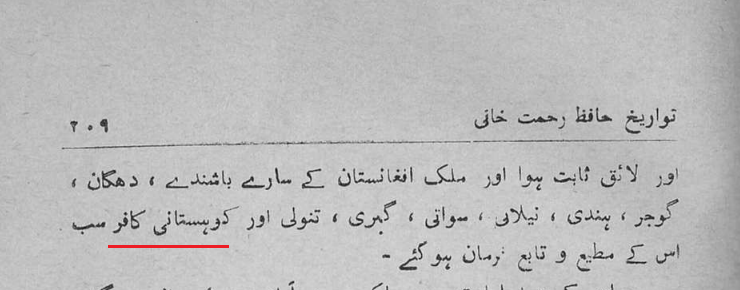 تواریخ حافظ رحمت خانی
۲۰۹
اور لائق ثابت ہوا اور ملک افغانستان کے سارے باشندے ، دھگان ،
گوجر ، ہندی ، نیلابی ، سواتی ، گبری ، تنولی اور کوہستانی کافر سب
اس کے مطیع و تابع فرمان ہوگئے -